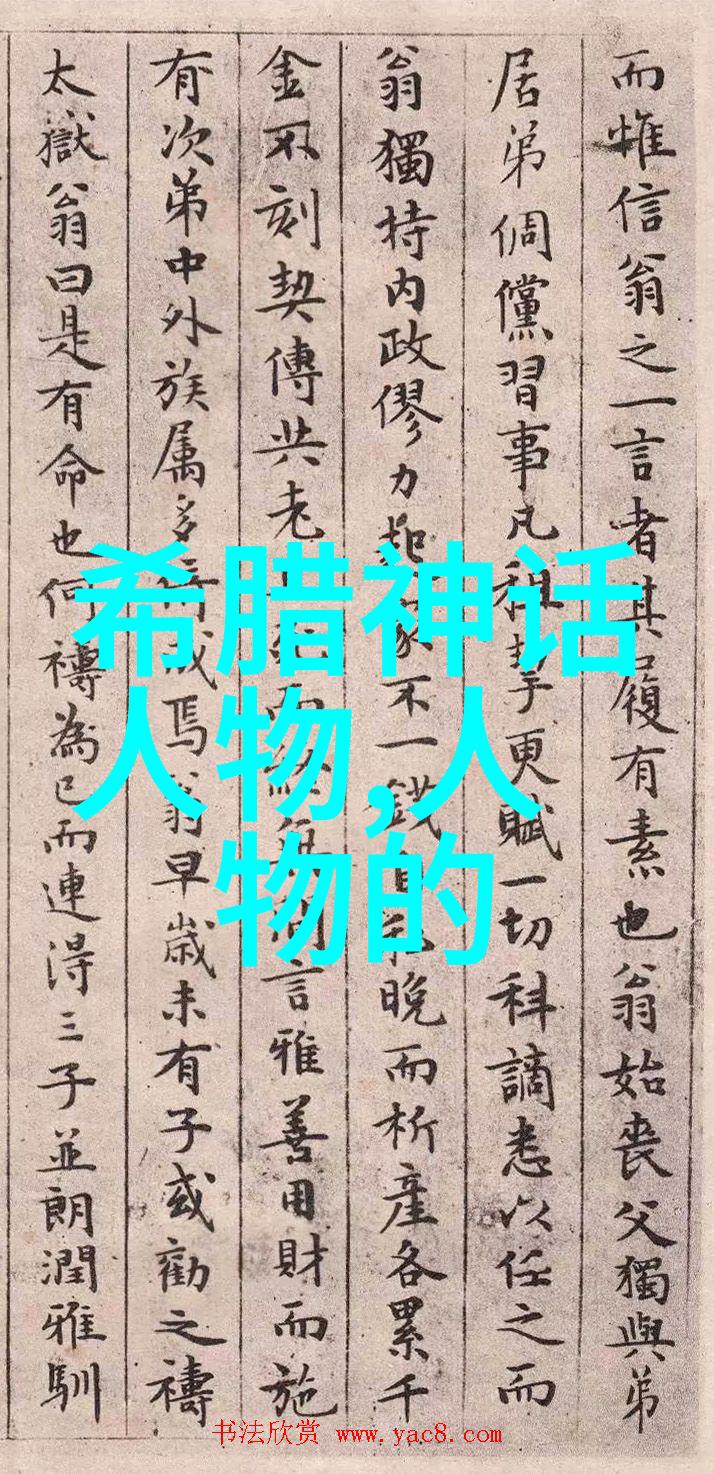 而惟信翁之一言者其履有素也翁始丧父獨與弟
居弟倜儻習事凡租挈更賦一切科謫悉以任之而
翁獨持内政僇力起家不一錢自私晚而析產各累千
金不刻契傳共老而終無間言雅善用財而施
有次弟中外族属多倚成焉翁早歲未有子或勸之禱
太嶽翁曰是有命也何禱為已而連得三子並朗潤雅馴
希腊神话
人物,人
物的
书法欣赏 www.yac8.com